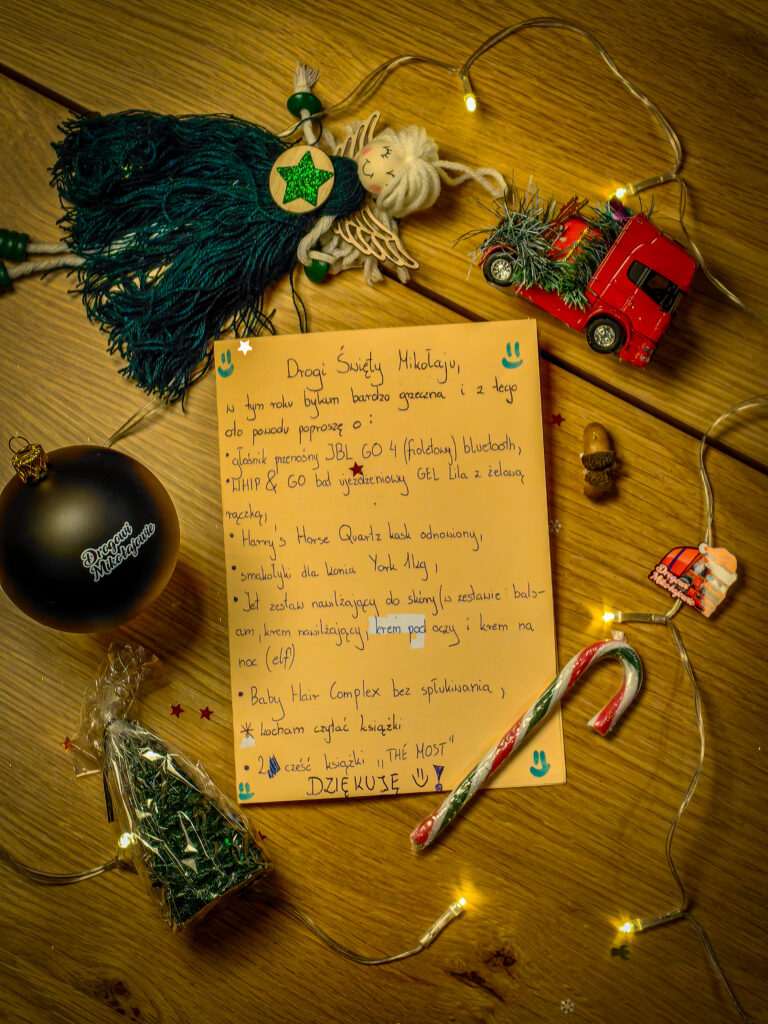 Drogi Święty Mikołaju,
w tym roku byłam bardzo grzeczna i z tego
oto powodu poproszę o :
• głośnik przenośny JBL GO 4 (fioletowy) bluetooth,
• WHIP & GO bat ujeżdżeniowy GEL Lila z żelową
rączką,
• Harry's Horse Quartz kask odnowiony,
• smakołyki dla konia York 1kg,
• Jet zestaw nawilżający do skóry (w zestawie: bals-
am, krem nawilżający, krem pod oczy i krem na
noc (elf)
• Baby Hair Complex bez spłukiwania,
* kocham czytać książki
• 2 cześć książki ,,THE MOST"
DZIĘKUJĘ
Drogowi
Mikołajowie
Drogowi
Mikołajowie